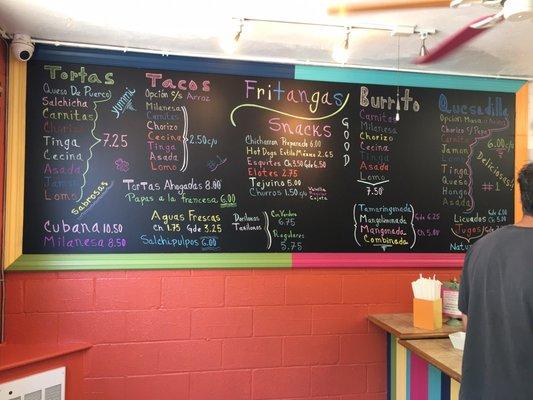 Tortas
Queso De Puerco
Salchicha
Carnitas
Chorizo
Tinga
Cecina
Asada
Jamon
Lomo
7.25
yummi
Sabrosas
Cubana 10.50
Milanesa 8.50
Tacos
Opcion S/ Arroz
Milanesa
Carnitas
Chorizo
Cecina
Tinga
Asada
Lomo
2.50 c/u
Tortas Ahogadas 8.00
Papas a la francesa 6.00
Aguas Frescas
Ch 1.75 Gde 3.25
Salchipulpos 6.00
Fritangas
Snacks
Chicharron Preparado 6.00
Hot Dogs Estilo México 2.65
Esquites Ch 3.50 Gde 6.50
Elotes 2.75
Tejuino 5.00
Churros 1.50 c/u
Vainilla
Cajeta
GOOD
Dorilocos
Tostilocos
Con Verdura
6.75
Regulares
5.75
Burrito
Carnitas
Milanesa
Chorizo
Cecina
Tinga
Asada
Lomo
7.50
Tamarindonada
Mangoloneada
Mangonada
Combinada
Gde 6.25
Ch 5.00
Quesadilla
Opcion Maiz
Chorizo S/ Papa
Carnitas
Asada
Tinga
Queso
Hongo
Asada
6.00 c/u
Delicioso
#1
Licuados Gde 6.00
Ch 5.00
Jugos